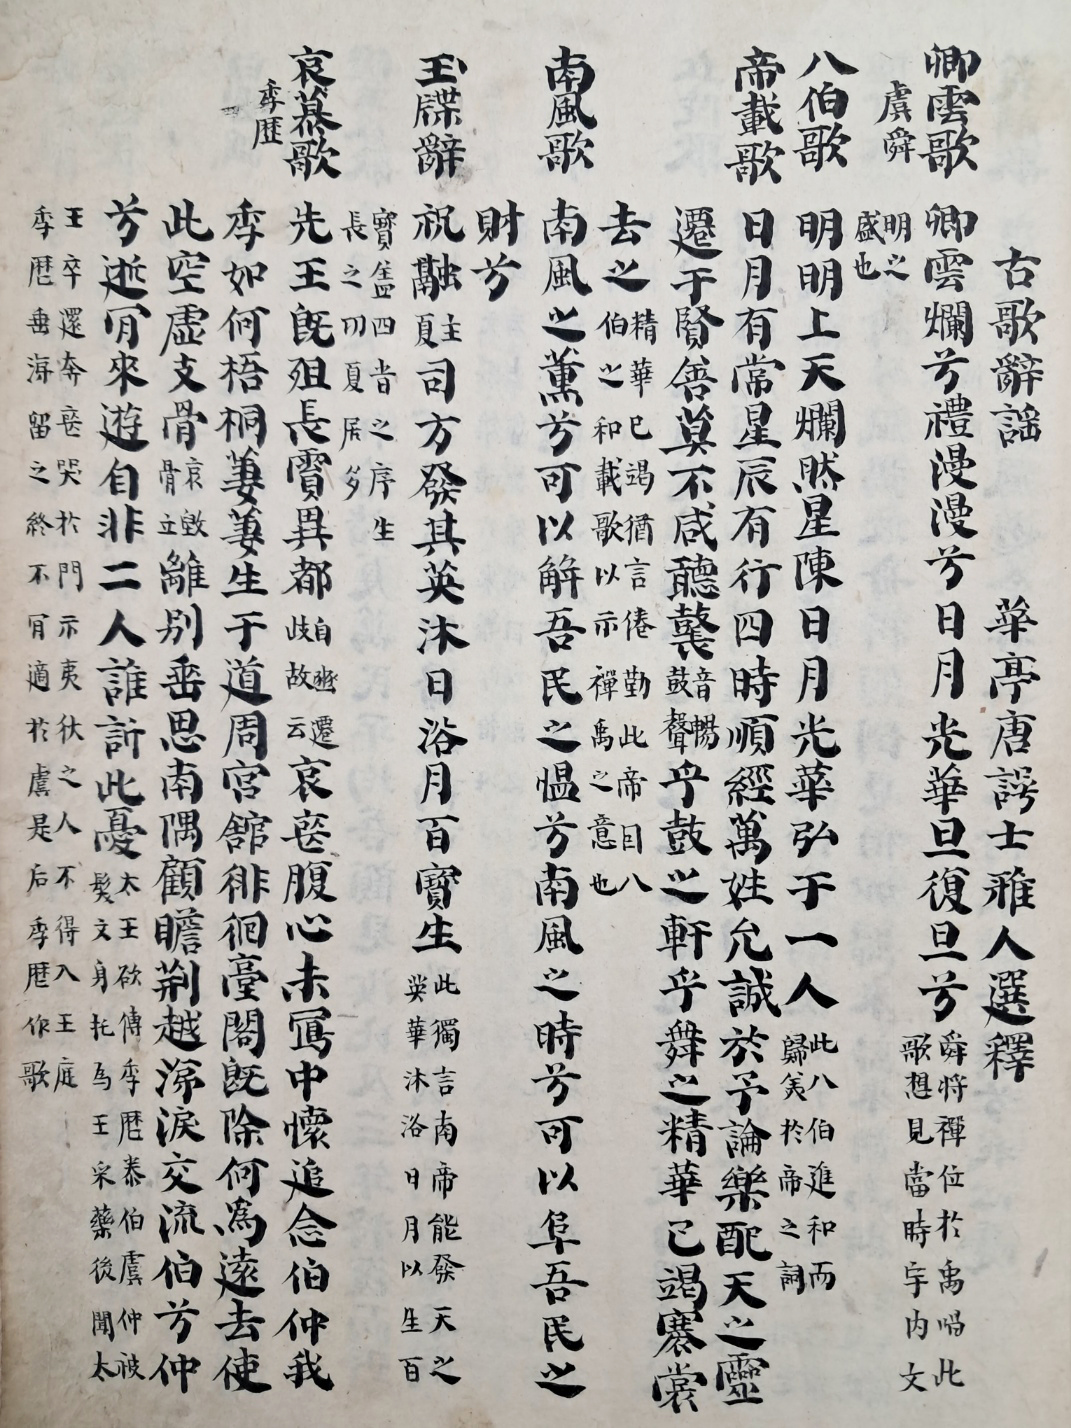 古歌辭謠　華亭唐諤士雅人選釋
卿雲歌　卿雲爛兮禮漫漫兮日月光華旦復旦兮舜將禪位於禹唱此歌想見當時宇内文
虞舜　明之盛也
八伯歌　明明上天爛然星陳日月光華弘于一人此八伯進和而歸美於帝之詞
帝載歌　日月有常星辰有行四時順經萬姓允誠於予論樂配天之靈
遷于賢善莫不咸聽鼚音暢鼓聲乎鼓之軒乎舞之精華已竭褰裳
去之精華已竭猶言倦勤此帝目八伯之和載歌以示禪禹之意也
南風歌　南風之薰兮可以解吾民之愠兮南風之時兮可以阜吾民之
財兮
玉牒辭　祝融主夏司方發其英沐日浴月百寶生此獨言南帝能發天之英華沐浴日月以生百
寶盖四者之序生長之功夏居多
哀慕歌　先王既殂長霣異都自豳遷岐故云哀喪腹心未寫中懷追念伯仲我
季歷　季如何梧桐萋萋生于道周宮館徘徊臺閣既除何為遠去使
此空虛支骨哀毀骨立離别垂思南隅顧瞻荆越涕淚交流伯兮仲
兮逝肎來遊自非二人誰訴此憂太王欲傳季歷泰伯虞仲被髮文身托為王采藥後聞太
王卒還奔喪哭於門示夷狄之人不得入王庭季歷垂海留之終不肎適於虞是后季歷作歌